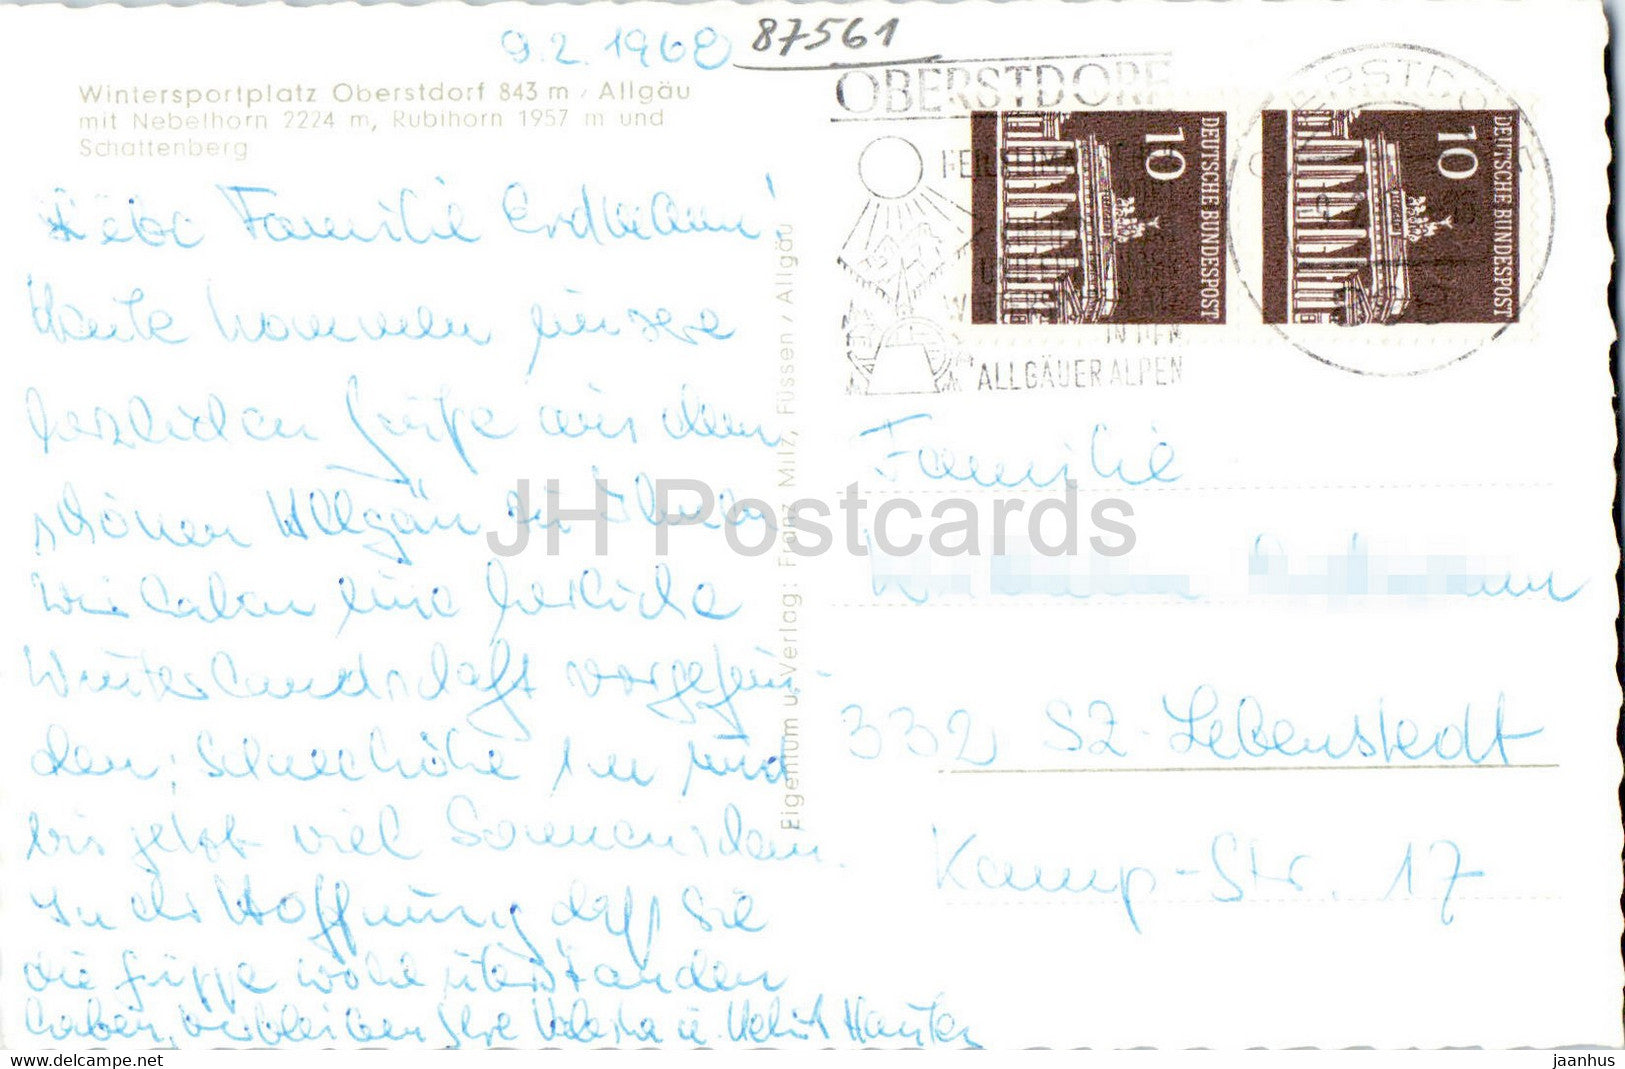 9.2.1968
87561
Wintersportplatz Oberstdorf 843 m / Allgäu
mit Nebelhorn 2224 m, Rubihorn 1957 m und
Schattenberg
Liebe Familie Erdmann!
Heute kommen unsere
herzlichen Grüße aus dem
schönen Allgäu zu Ihnen
Wir haben eine herliche
Winterlandschaft vorgefun-
den; Schneehöhe 1 m und
bis jetzt viel Sonnenschein.
In der Hoffnung daß Sie
die Grippe wohl überstanden
haben, verbleiben Ihre u. Helmut
Eigentum u. Verlag: Franz Milz, Füssen / Allgäu
OBERSTDORF
IN DEN
ALLGÄUER ALPEN
OBERSTDORF
10
DEUTSCHE BUNDESPOST
10
DEUTSCHE BUNDESPOST
Familie
332 SZ-Lebenstedt
Kamp-Str. 17
JH Postcards
www.delcampe.net
jaanhus